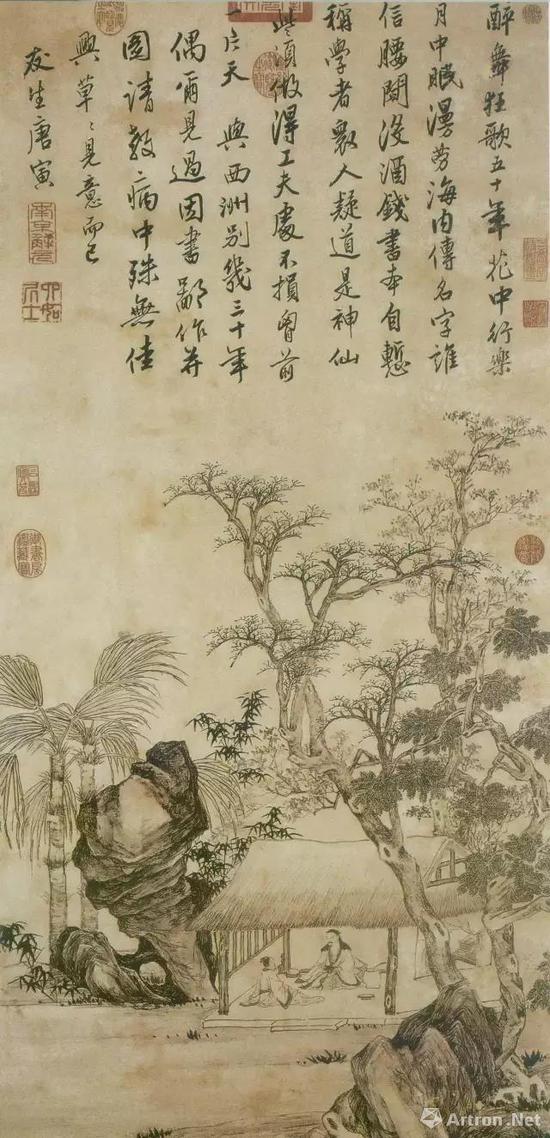 醉舞狂歌五十年花中行樂
月中眠漫勞海內傳名字誰
信腰間沒酒錢書本自慙
稱學者衆人疑道是神仙
些須做得工夫處不損胷前
一片天 與西洲別幾三十年
偶爾見過因書鄙作并
圖請教病中殊無佳
興草〻見意而已
友生唐寅
南京解元
六如居士
Artron.Net